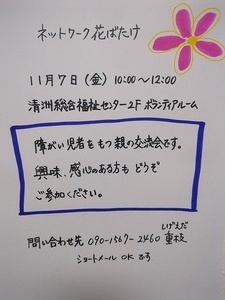 ネットワーク花ばたけ
11月7日(金) 10:00～12:00
清洲総合福祉センター2F ボランティアルーム
障がい児者をもつ親の交流会です。
興味、感心のある方も どうぞ
ご参加ください。
しげえだ
問い合わせ先 090-1567-2460 重枝
ショートメール OK です